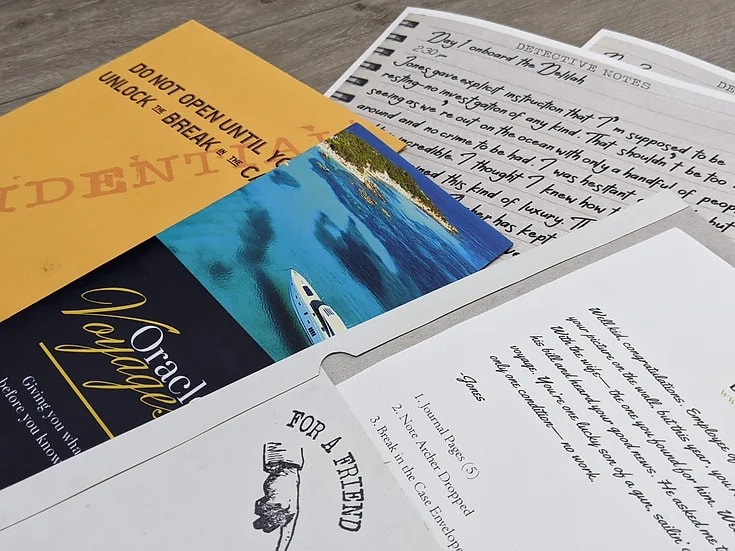 DO NOT OPEN UNTIL
UNLOCK THE BREAK IN THE
DETECTIVE NOTES
Day 1 onboard the Delilah
Jones gave explicit instruction that I'm supposed to be
resting-no investigation of any kind. That shouldn't be too
seeing as we're out on the ocean with only a handful of people
around and no crime to be had. I was hesitant
incredible. I thought I knew how
this kind of luxury.
has kept
Oracle
Voyages
Giving you
before you
FOR A FRIEND
1. Journal Pages (5)
2. Note Archer Dropped
3. Break in the Case Envelope
Well kid, congratulations. Employee of
your picture on the wall, but this year, you
With the wife— the one you found for him.
his bill and heard your good news. He asked me
voyage. You're one lucky son of a gun, sailin'
only one condition— no work.
-Jones